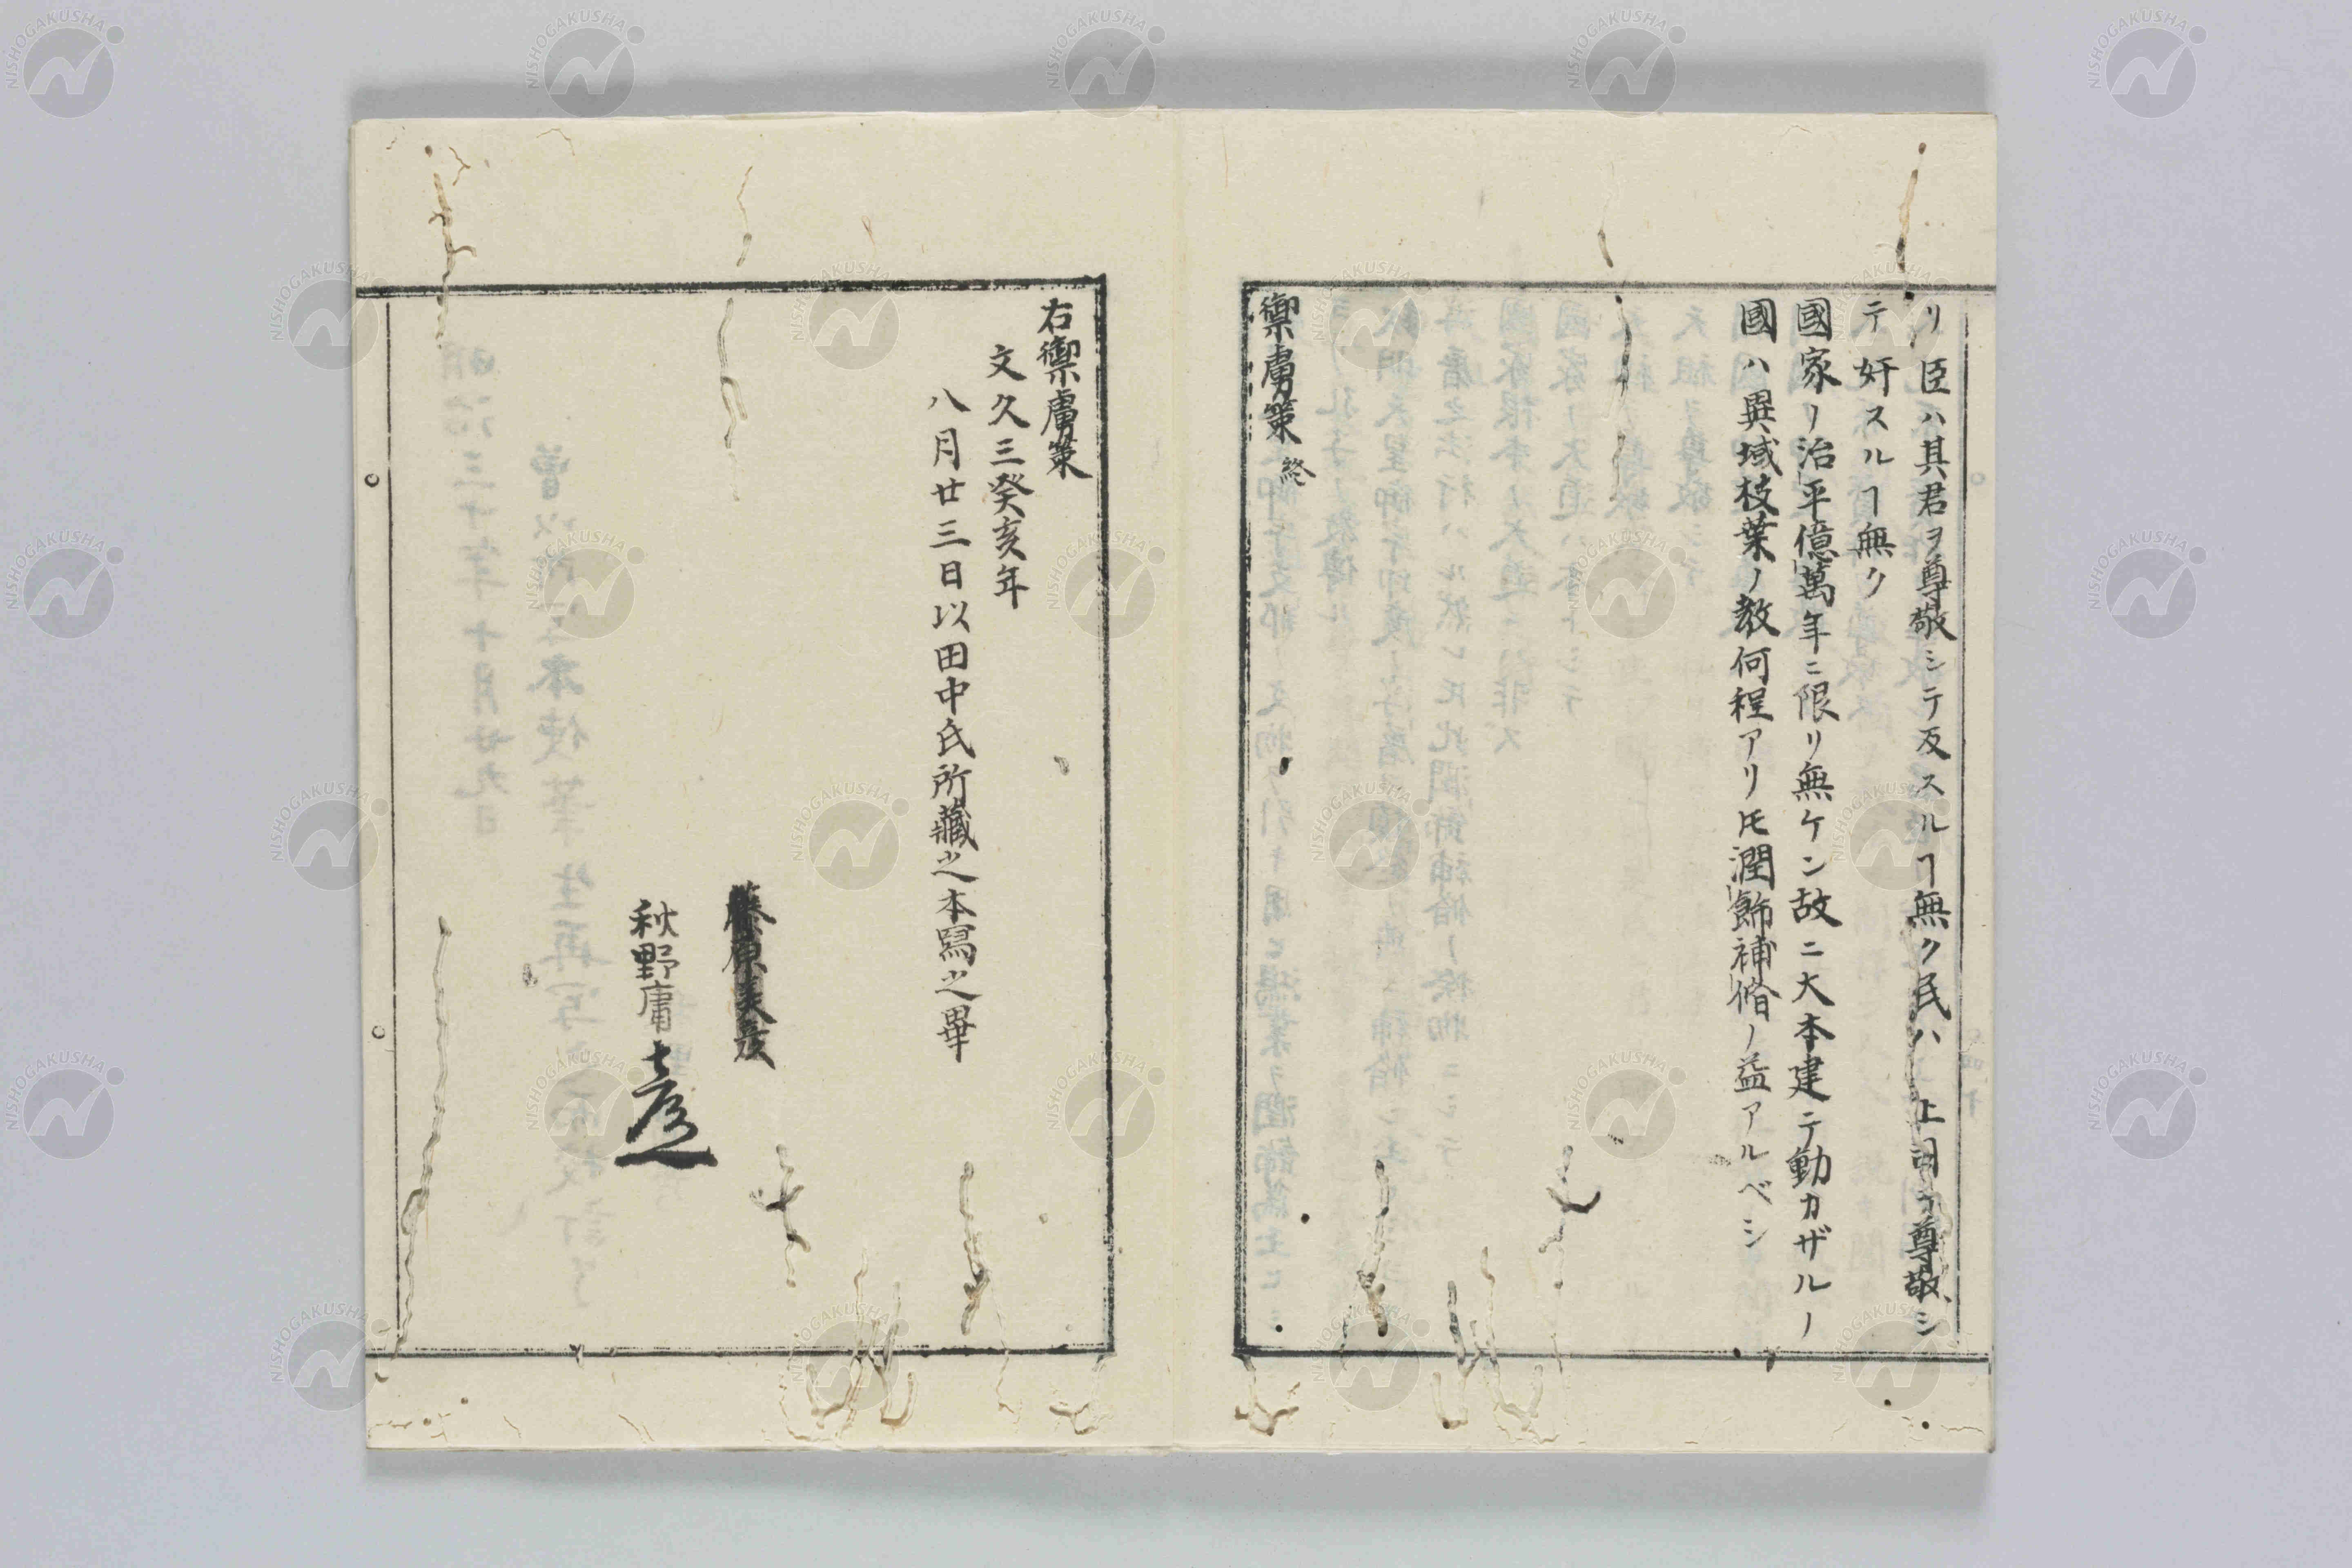 リ臣ハ其君ヲ尊敬シテ反スルヿ無ク民ハ上司ヲ尊敬シ
テ奸スルヿ無ク
國家リ治平億萬年ニ限リ無ケン故ニ大本建テ動カザルノ
國ハ異域枝葉ノ教何程アリ𪜈潤飾補脩ノ益アルベシ
禦虜策終
右禦虜策
文久三癸亥年
八月廿三日以田中氏所藏之本寫之畢
秋野庸
NISHOGAKUSHA